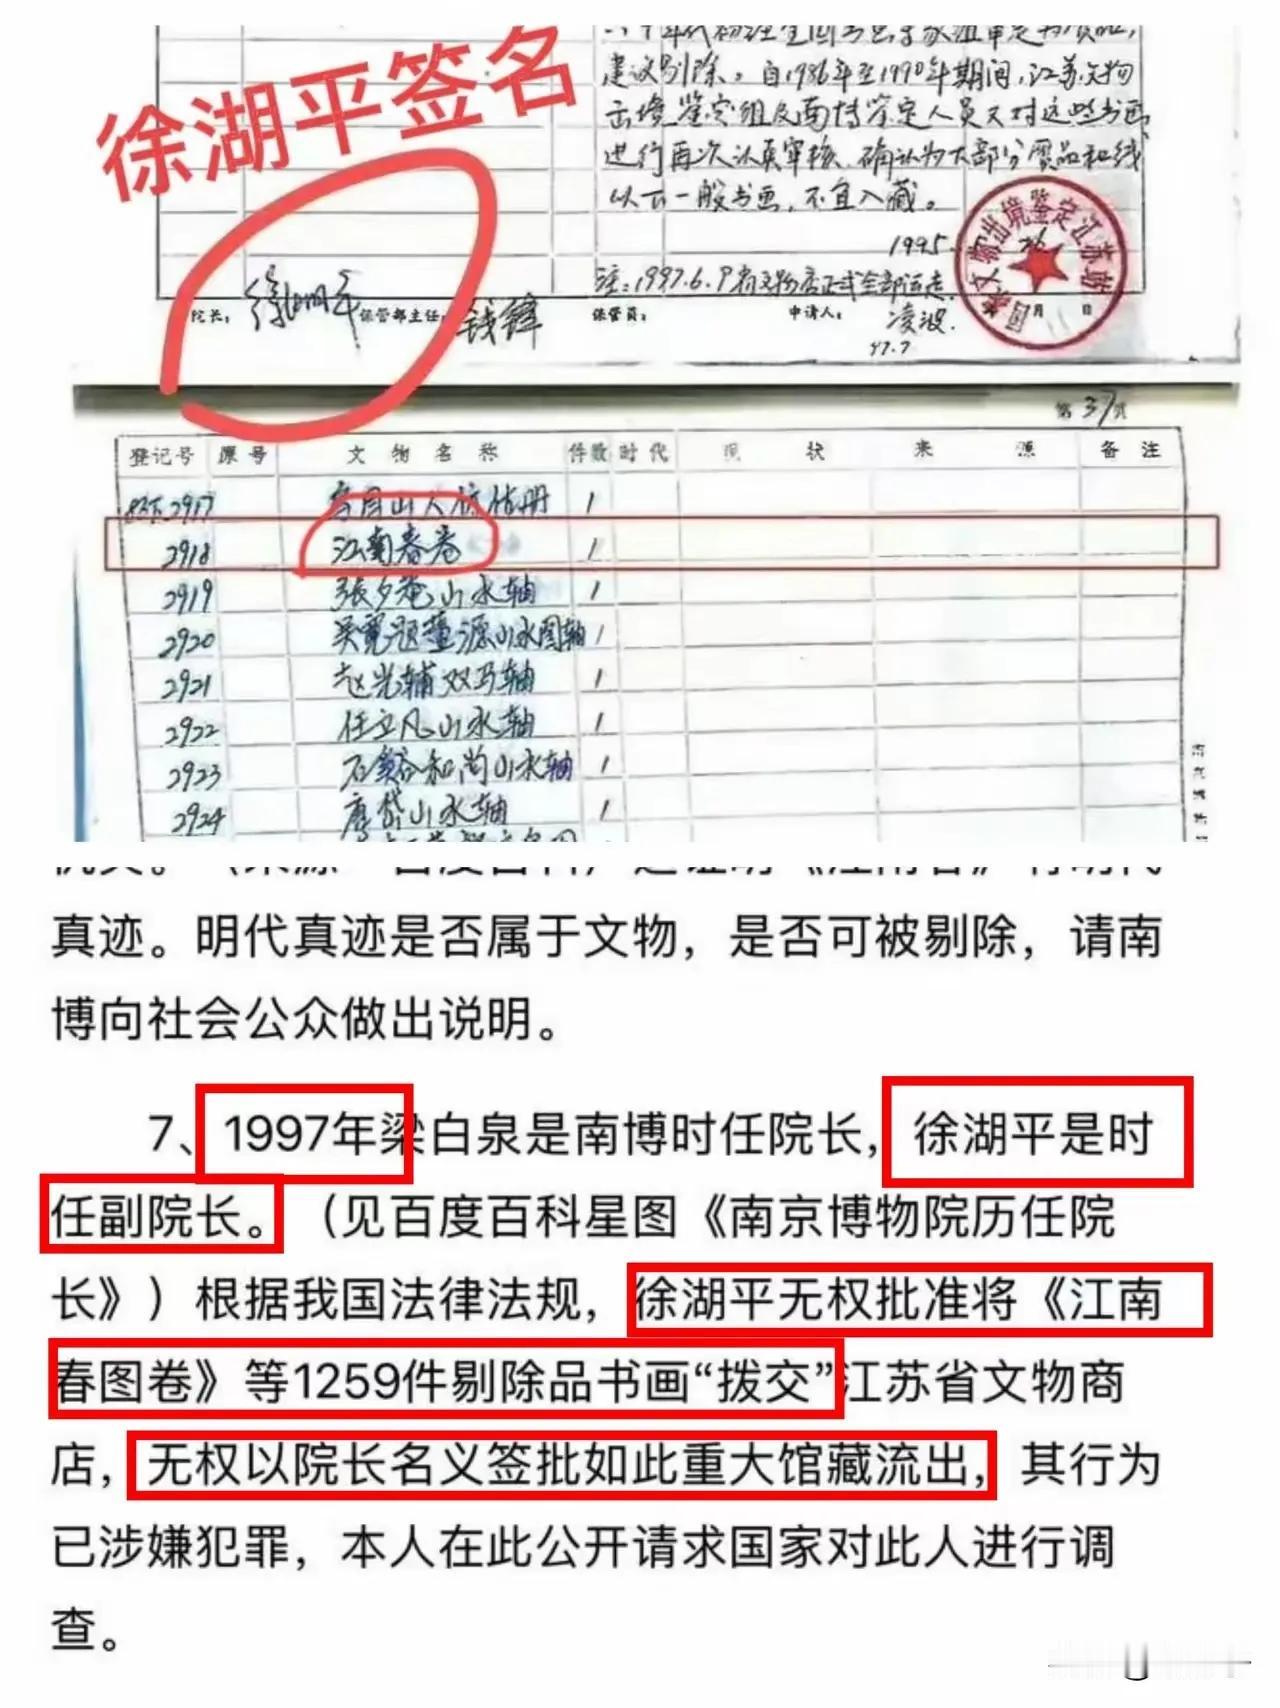 徐湖平签名
建议剔除。自1986年至1990年期间,江苏文物
出境鉴定组及南博鉴定人员又对这些书画
进行再次认真审核、确认为大部分赝品和线
以下一般书画,不宜入藏。
1995.
国家文物出境鉴定江苏站
月 日
注:1997.6.9
院长: 徐湖平 保管部主任: 钱锋 保管员: 申请人: 凌波.
97.7
第37页
登记号 原号 文物名称 件数 时代 现状 来源 备注
2917 1
2918 江南春卷 1
2919 張夕菴山水轴 1
2920 吴宽题董源山水图轴 1
2921 赵光辅双马轴 1
2922 任立凡山水轴 1
2923 石谿和尚山水轴 1
2924 唐岱山水轴 1
真迹。明代真迹是否属于文物,是否可被剔除,请南
博向社会公众做出说明。
7、1997年梁白泉是南博时任院长,徐湖平是时
任副院长。(见百度百科星图《南京博物院历任院
长》)根据我国法律法规,徐湖平无权批准将《江南
春图卷》等1259件剔除品书画“拨交”江苏省文物商
店,无权以院长名义签批如此重大馆藏流出,其行为
已涉嫌犯罪,本人在此公开请求国家对此人进行调
查。